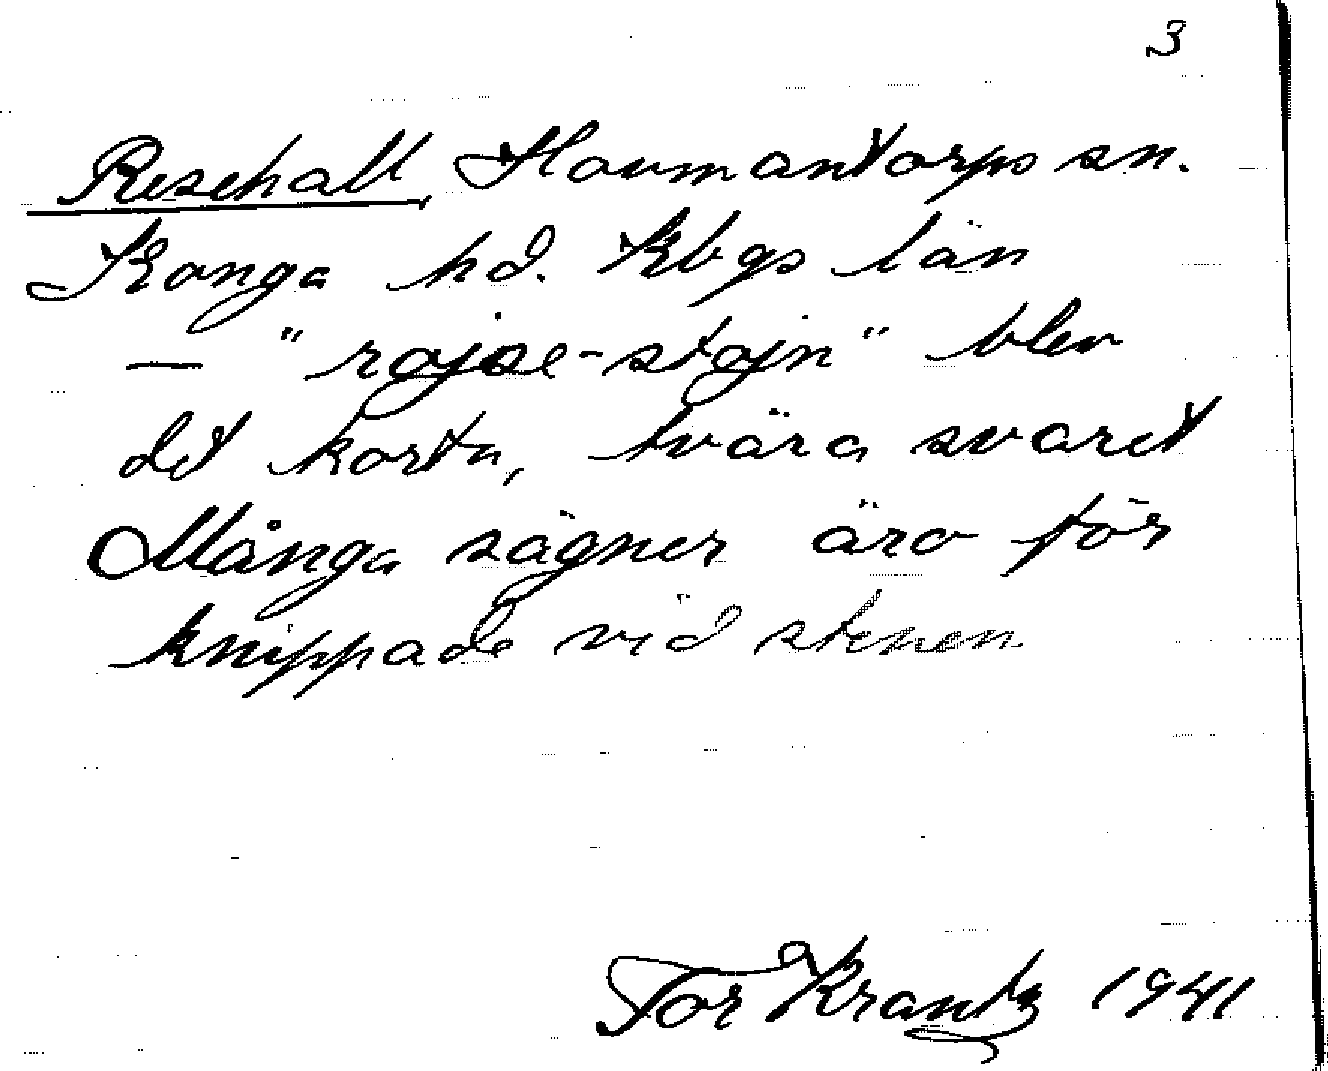 3
Resehall, Hovmantorps sn.
Konga hd. Kbgs län
— "rajse-stajn" blev
det korta, tvära svaret
Många sägner äro för
knippade vid stenen
Tor Krantz 1941